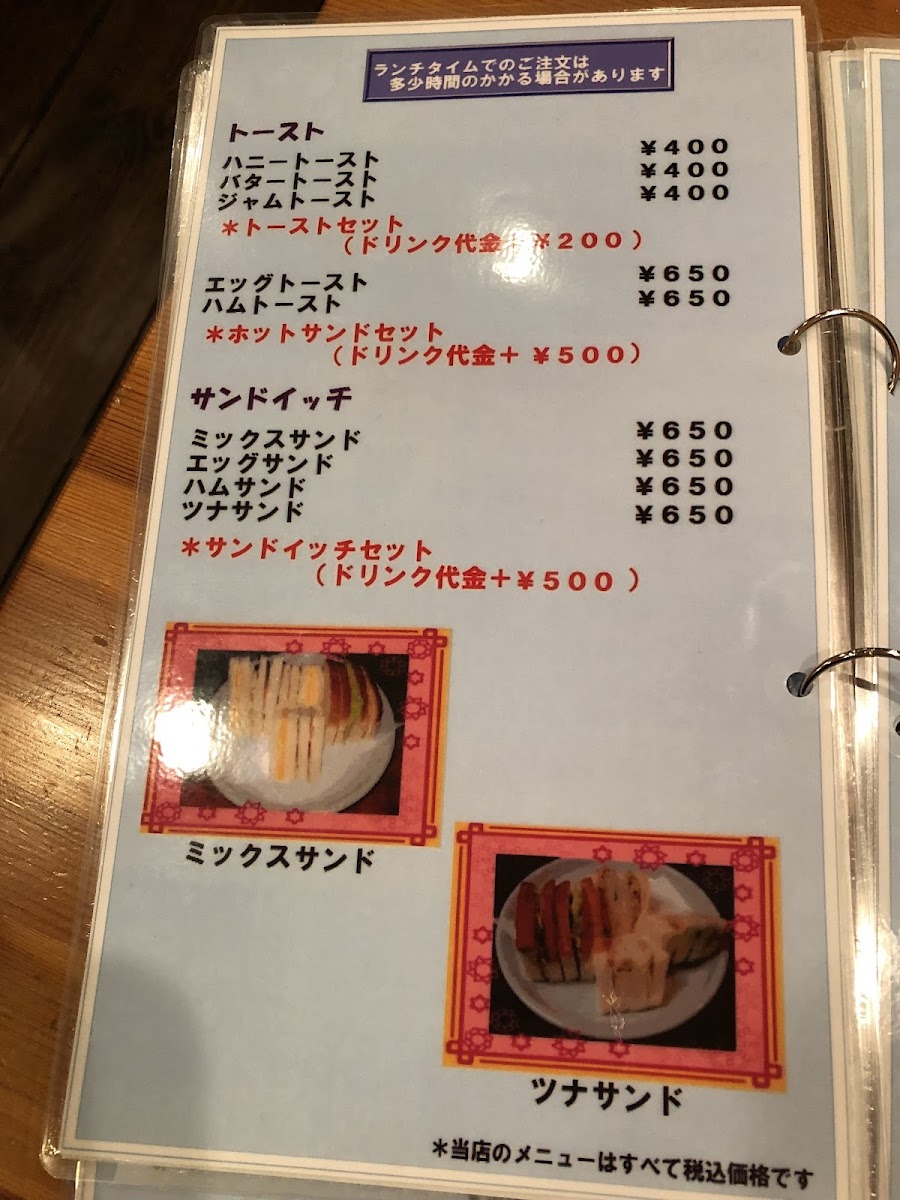 ランチタイムでのご注文は
多少時間のかかる場合があります
トースト
ハニートースト ￥４００
バタートースト ￥４００
ジャムトースト ￥４００
＊トーストセット
（ドリンク代金＋￥２００）
エッグトースト ￥６５０
ハムトースト ￥６５０
＊ホットサンドセット
（ドリンク代金＋￥５００）
サンドイッチ
ミックスサンド ￥６５０
エッグサンド ￥６５０
ハムサンド ￥６５０
ツナサンド ￥６５０
＊サンドイッチセット
（ドリンク代金＋￥５００）
ミックスサンド
ツナサンド
＊当店のメニューはすべて税込価格です